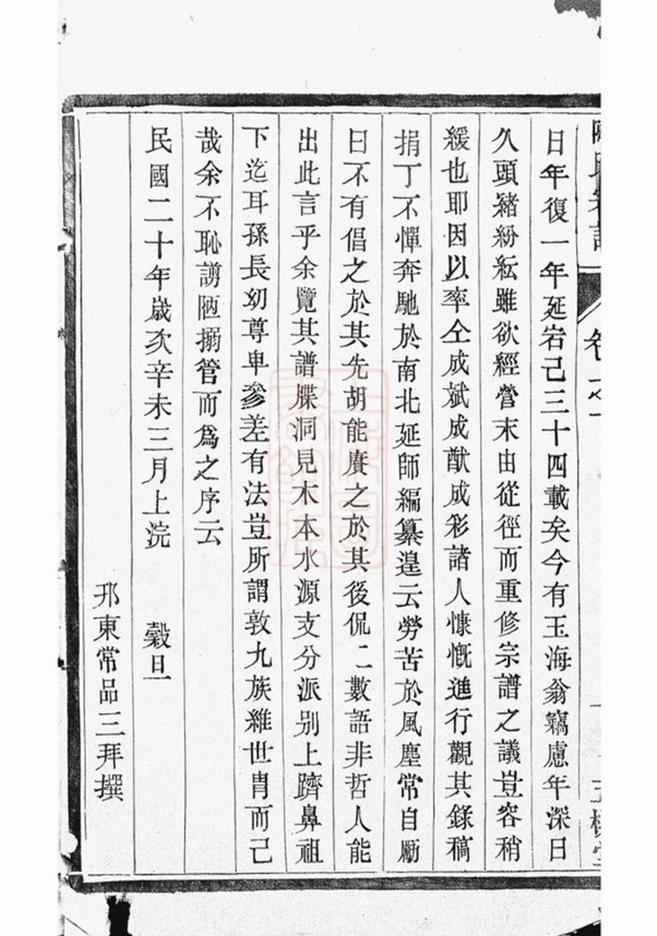 日年復一年延宕已三十四載矣今有玉海翁竊慮年深日
久頭緒紛紜雖欲經營末由從徑而重修宗譜之議豈容稍
緩也耶因以率仝成斌成猷成彩諸人慷慨進行觀其錄稿
捐丁不憚奔馳於南北延師編纂遑云勞苦於風塵常自勵
曰不有倡之於其先胡能賡之於其後侃二數語非哲人能
出此言乎余覽其譜牒洞見木本水源支分派別上躋鼻祖
下迄耳孫長幼尊卑參差有法豈所謂敦九族維世胄而已
哉余不恥謭陋搦管而爲之序云
民國二十年歲次辛未三月上浣 穀旦
邢東常品三拜撰